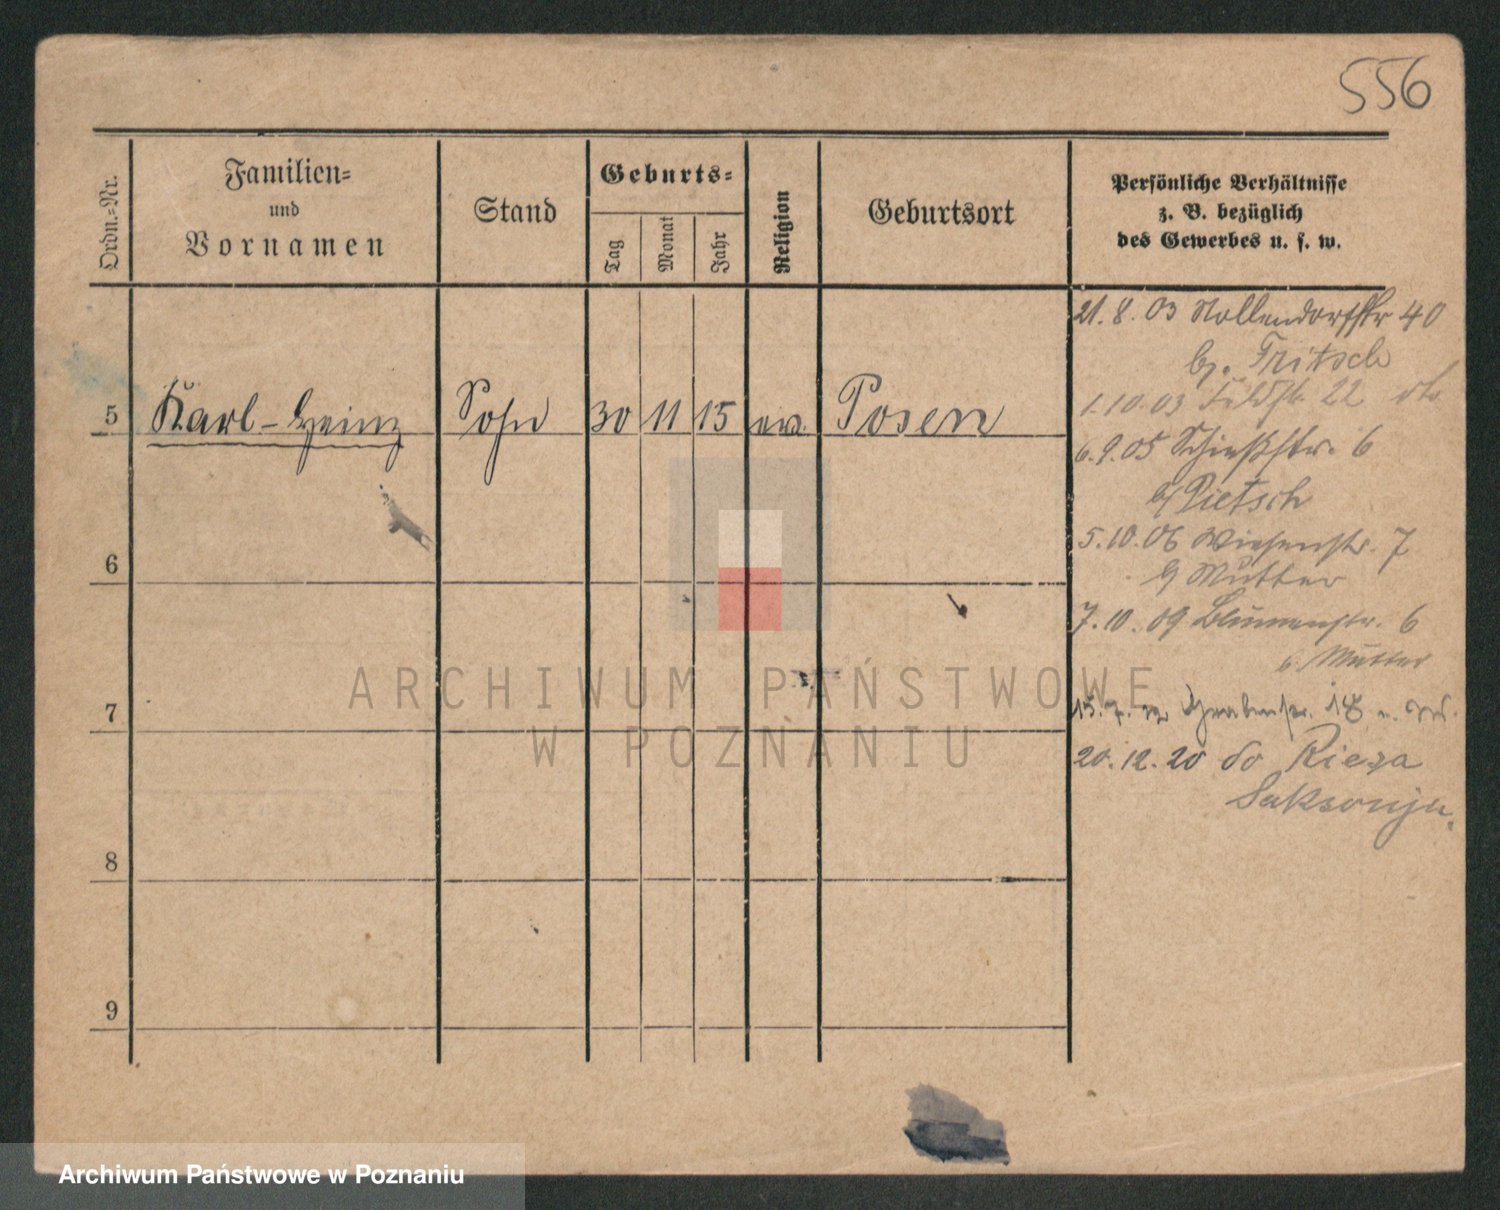 556
Ordn.-Nr.
Familien-
und
Vornamen
Stand
Geburts-
Tag
Monat
Jahr
Religion
Geburtsort
Persönliche Verhältnisse
z. B. bezüglich
des Gewerbes u. s. w.
5 Karl-Heinz Sohn 30 11 15 ev. Posen
6
7
8
9
21. 8. 03 Nollendorfstr 40
b. Fritsch
1. 10. 03 Feldstr. 22
6. 9. 05 Schießstr. 6
b Pietsch
5. 10. 06 Wiesenstr. 7
b Mutter
7. 10. 09 Blumenstr. 6
b. Mutter
15. 7. Grabenstr. 18
20. 12. 20 do Rieza
Saksonja.
ARCHIWUM PAŃSTWOWE
W POZNANIU
Archiwum Państwowe w Poznaniu